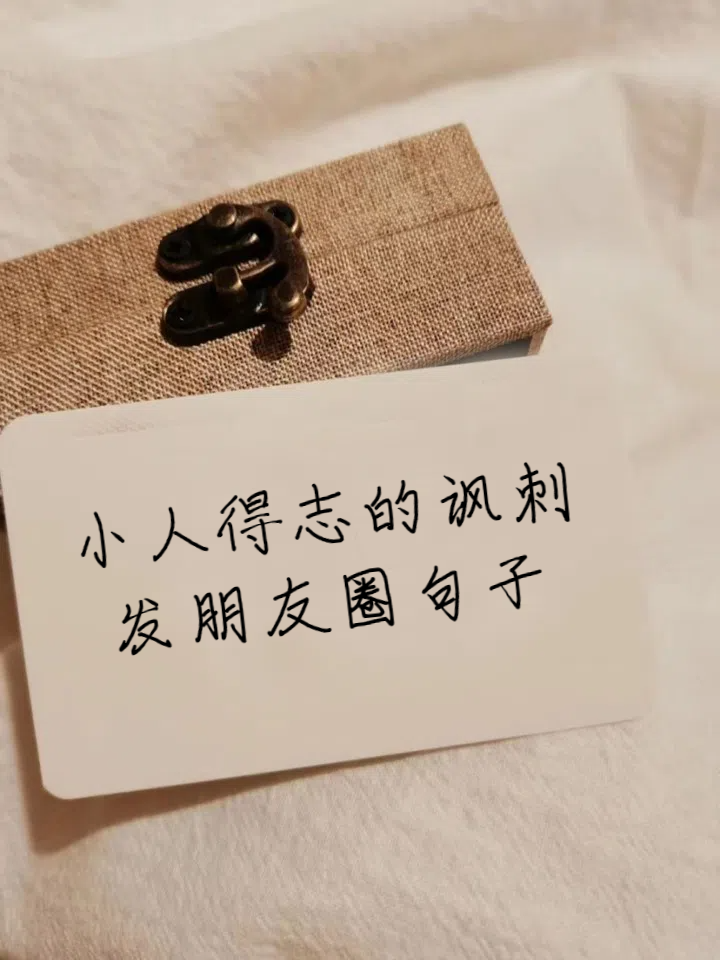 小人得志的讽刺
发朋友圈句子